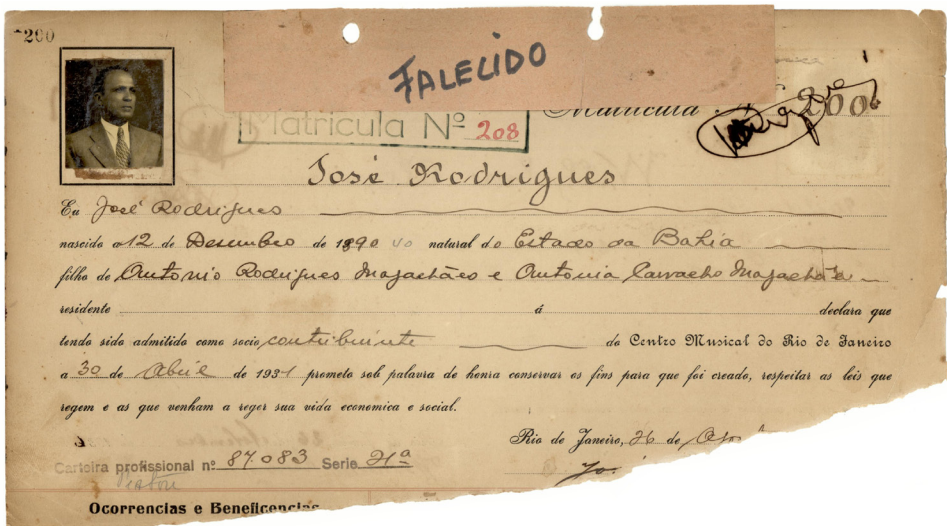 200
FALECIDO
Matricula 200
Matricula Nº 208
José Rodrigues
Eu José Rodrigues
nascido a 12 de Desembro de 1890 natural do Estado da Bahia
filho de Antonio Rodrigues Magachães e Antonia Carvacho Magachães
residente á declara que
tendo sido admitido como socio contribuinte do Centro Musical do Rio de Janeiro
a 30 de Abril de 1931 prometo sob palavra de honra conservar os fins para que foi creado, respeitar as leis que
regem e as que venham a reger sua vida economica e social.
Rio de Janeiro, 26 de
Carteira profissional nº 87083 Serie 21ª
Ocorrencias e Beneficencias